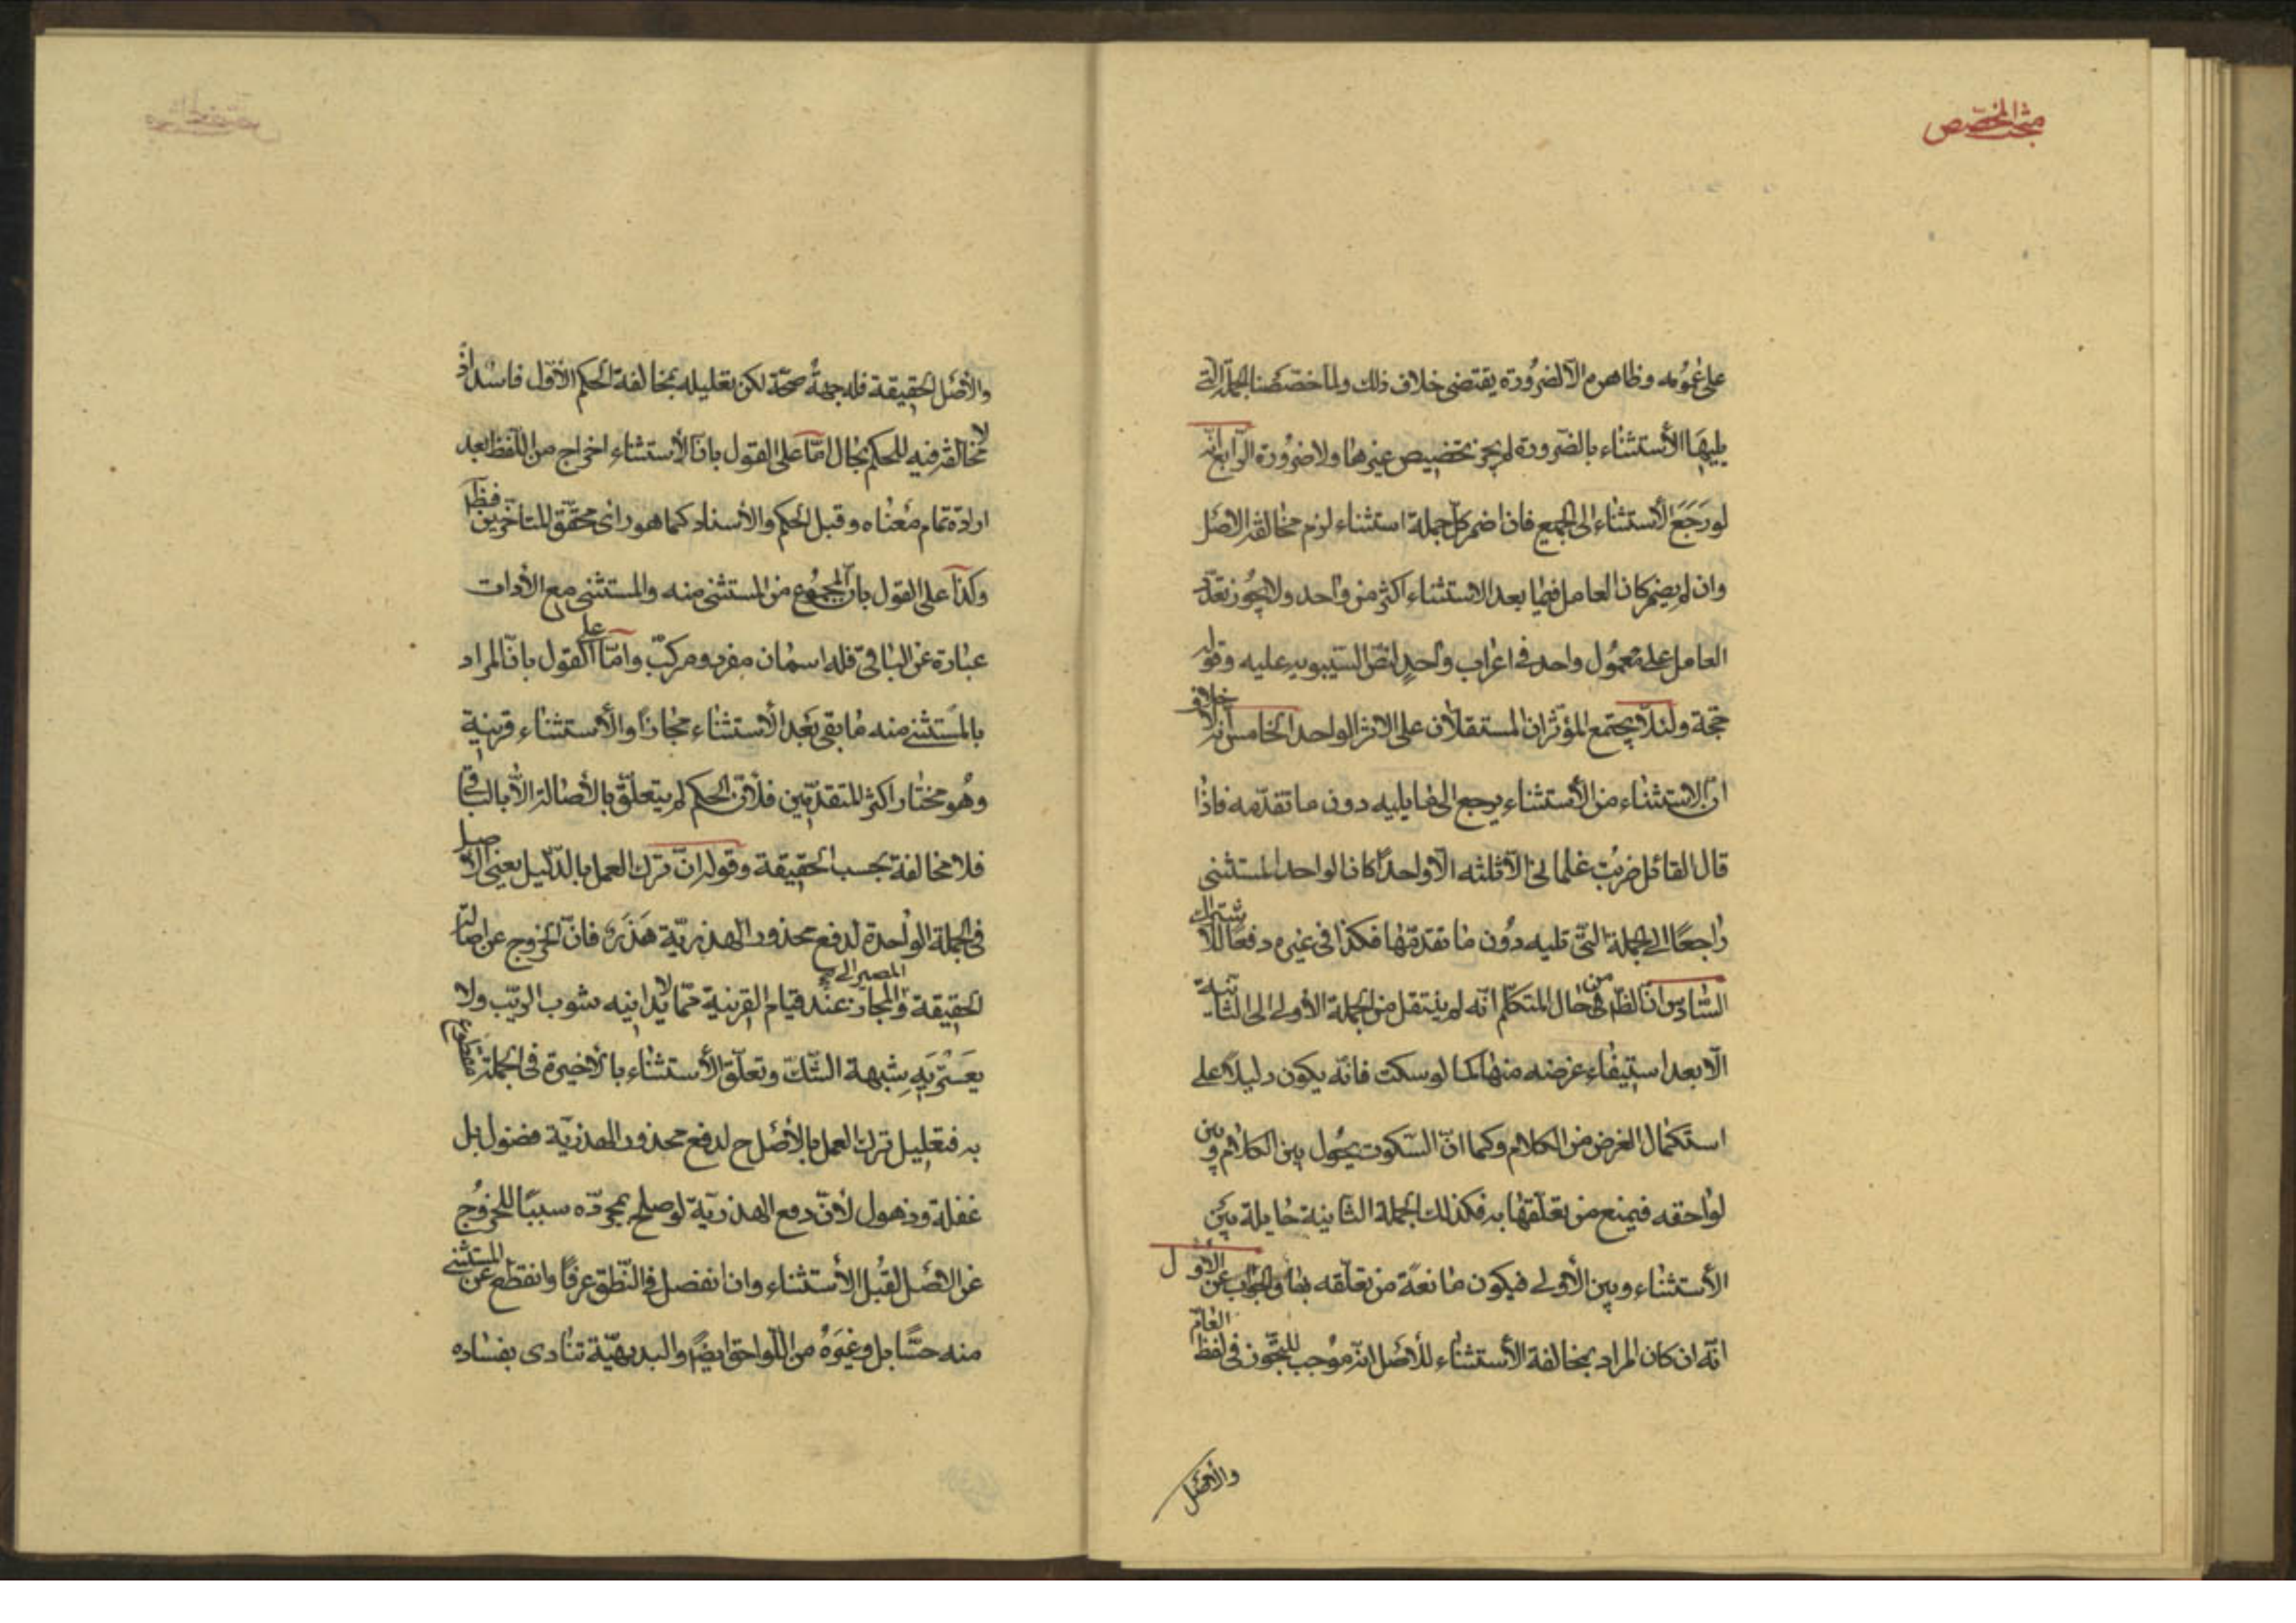 مبحث المخصص
على عمومه وظاهره والضرورة يقتضى خلاف ذلك ولما خصصنا الجملة التى
يليها الأستثناء بالضرورة لم يجز تخصيص غيرها ولا ضرورة الرابع انه
لو رَجَعَ الأستثناء الى الجميع فان اضمر كل جملة استثناء لزم مخالفة الاصل
وان لم يضمر كان العامل فيما بعد الاستثناء اكثر من واحد ولا يجوز تعدّد
العامل على معمول واحد فى اعراب واحدٍ لنص السّيبويه عليه وقوله
حجة ولئلّا يجتمع المؤثران المستقلان على الاثر الواحد الخامس انه لا خلاف
انّ الاستثناء من الأستثناء يرجع الى ما يليه دون ما تقدّمه فاذا
قال القائل ضربت غلمانى الّا ثلثه الّا واحدًا كان الواحد المستثنى
راجعًا الى الجملة التى تليه دون ما تقدمتها فكذا فى غيره دفعًا للاشتراك
السّادس انّ الظّ من حال المتكلّم انّه لم ينتقل من الجملة الأولى الى الثانية
الّا بعد استيفاء غرضه منها كما لو سكت فانّه يكون دليلًا على
استكمال الغرض من الكلام وكما انّ السّكوت يحول بين الكلام وبين
لواحقه فيمنع من تعلّقها به فكذلك الجملة الثانية حايلة بين
الأستثناء وبين الأولى فيكون مانعة من تعلّقه بها والجواب عن الاول
انّه ان كان المراد بمخالفة الأستثناء للأصل انّه موجب للتّجوز فى لفظ العامّ
والأصل
والأصل الحقيقة فله جهةُ صحّة لكن تعليله بمخالفة الحكم الأوّل فاسد اذ
لا مخالفة فيه للحكم بحال امّا على القول بانّ الأستثناء اخراج من اللّفظ بعد
ارادة تمام معناه وقبل الحكم والأسناد كما هو راى محقّق المتاخرين فظَ
وكذا على القول بانّ المجموع من المستثنى منه والمستثنى مع الأدات
عبارة عن الباقى فله اسمان مفرد ومركبّ وامّا على القول بانّ المراد
بالمستثنى منه ما بقى بَعْد الأستثناء مجازًا والأستثناء قرينة
وهُو مختار اكثر المتقدّمين فلأنّ الحكم لم يتعلّق بالأصالة الّا بالباقى
فلا مخالفة بحسب الحقيقة وقوله انّ ترك العمل بالدّليل يعنى الأصيل
فى الجملة الواحدة لدفع محذور الهذريّة هَذَر فانّ الخروج عن اصالة
الحقيقة والمصير الى المجاز عند قيام القرينة ممّا لا يدانيه شوب الريّب ولا
يعَتريَه شبهة الشّك وتعلّق الأستثناء بالأخيرة فى الجملة مقطوع
به فتعليل ترك العمل بالأصل ح لدفع محذور الهذريّة فضول بل
غفلة وذهول لأنّ دفع الهذريّة لو صلح بمجرّده سببًا للخروج
عن الاصل لقُبل الأستثناء وان انفصل فى النّطق عرفًا وانقطع عن المستثنى
منه حسًّا بل وغيَره من اللّواحق ايضًا والبديهيّة تنادى بفساده